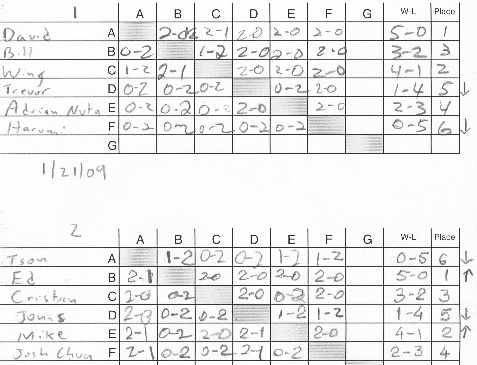 1 A B C D E F G W-L Place
David A 2-0 2-1 2-0 2-0 2-0 5-0 1
Bill B 0-2 1-2 2-0 2-0 2-0 3-2 3
Wing C 1-2 2-1 2-0 2-0 2-0 4-1 2
Trevor D 0-2 0-2 0-2 0-2 2-0 1-4 5 ↓
Adrian Nuta E 0-2 0-2 0-2 2-0 2-0 2-3 4
Harumi F 0-2 0-2 0-2 0-2 0-2 0-5 6 ↓
G
1/21/09
2 A B C D E F G W-L Place
Tson A 1-2 0-2 0-2 1-2 1-2 0-5 6 ↓
Ed B 2-1 2-0 2-0 2-0 2-0 5-0 1 ↑
Cristian C 2-0 0-2 2-0 0-2 2-0 3-2 3
Jonas D 2-0 0-2 0-2 1-2 1-2 1-4 5 ↓
Mike E 2-1 0-2 2-0 2-1 2-0 4-1 2 ↑
Josh Chua F 2-1 0-2 0-2 2-1 0-2 2-3 4